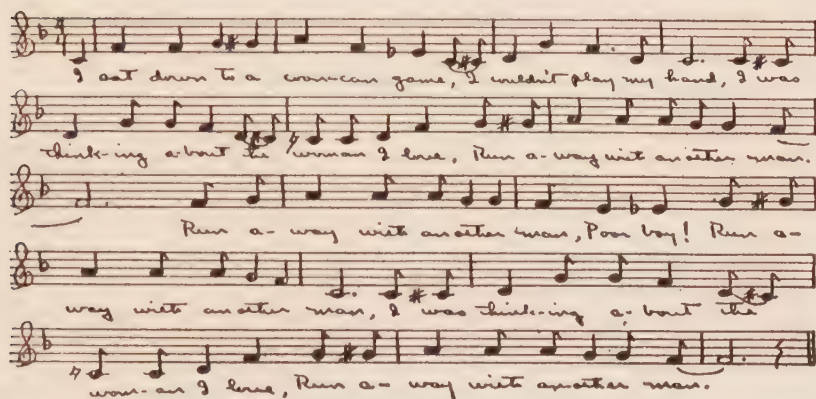 I sat down to a coon-can game, I couldn't play my hand, I was
think-ing a-bout the woman I love, Run a-way with another man.
Run a-way with another man, Poor boy! Run a-
way with another man, I was think-ing a-bout the
wom-an I love, Run a-way with another man.